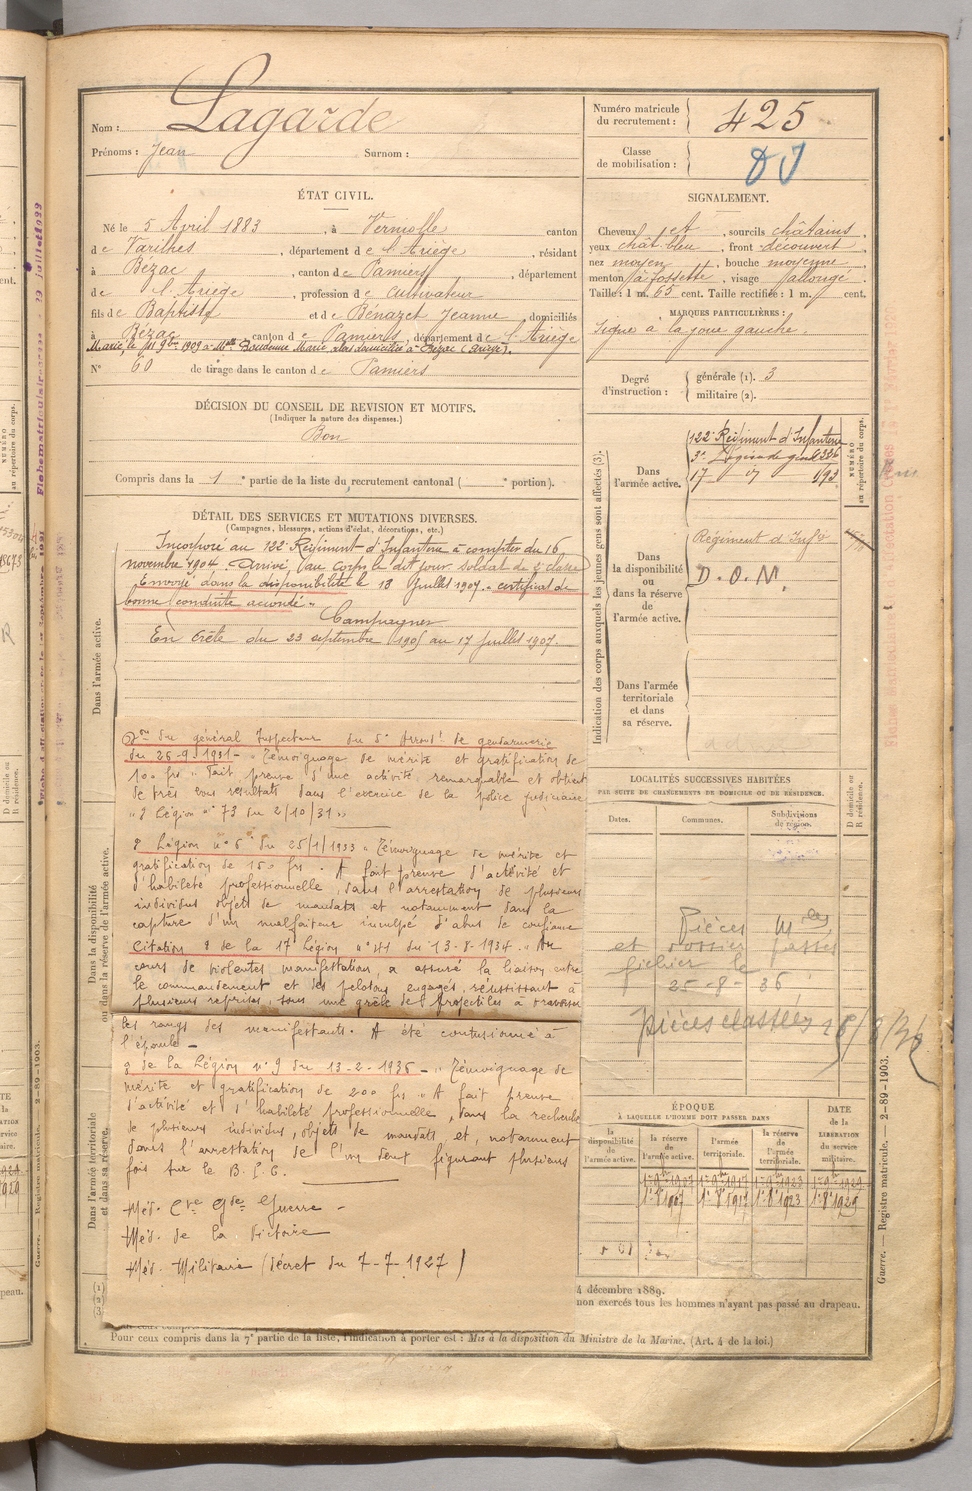 Nom : Lagarde
Prénoms : Jean Surnom :
Numéro matricule du recrutement : 425
Classe de mobilisation :
ÉTAT CIVIL.
Né le 5 Avril 1883, à Verniolle canton
de Varilhes, département de l'Ariège, résidant
à Bézac, canton de Pamiers, département
de l'Ariège, profession de cultivateur
fils de Baptiste et de Bénazet Jeanne domiciliés
à Bézac canton de Pamiers, département de l'Ariège
Marié, le 9bre 1909 à Melle Marie, domiciliée à Bézac (Ariège).
N° 60 de tirage dans le canton de Pamiers
SIGNALEMENT.
Cheveux et, sourcils châtains,
yeux chât-bleu, front découvert,
nez moyen, bouche moyenne
menton à fossette, visage allongé
Taille : 1 m. 65 cent. Taille rectifiée : 1 m. cent.
MARQUES PARTICULIÈRES :
Signe à la joue gauche.
Degré d'instruction : générale (1). 3
militaire (2).
DÉCISION DU CONSEIL DE REVISION ET MOTIFS.
(Indiquer la nature des dispenses.)
Bon
Compris dans la 1e partie de la liste du recrutement cantonal ( e portion).
DÉTAIL DES SERVICES ET MUTATIONS DIVERSES.
(Campagnes, blessures, actions d'éclat, décorations, etc.)
Incorporé au 122e Régiment d'Infanterie à compter du 16
novembre 1904. Arrivé au corps le dit jour soldat de 2e classe
Envoyé dans la disponibilité le 13 Juillet 1907. certificat de
bonne conduite accordé.
Campagnes
En Crète du 23 septembre 1905 au 17 Juillet 1907.
Dans l'armée active.
Dans la disponibilité ou dans la réserve de l'armée active.
Dans l'armée territoriale et dans sa réserve.
du général Inspecteur du 5e Arrondt de gendarmerie
du 26-9-1931 - "Témoignage de mérite et gratification de
100 frs. Fait preuve d'une activité remarquable et obtient
de très bons résultats dans l'exercice de la police judiciaire
Légion n° 73 du 2/10/31"
Légion n° 6 du 25/1/1933 "Témoignage de mérite et
gratification de 150 frs. A fait preuve d'activité et
d'habileté professionnelle, dans l'arrestation de plusieurs
individus objets de mandats et notamment dans la
capture d'un malfaiteur inculpé d'abus de confiance
Citation de la 17e Légion n° 41 du 13-8-1934. "Au
cours de violentes manifestation, a assuré la liaison entre
le commandement et des pelotons engagés, réussissant à
plusieurs reprises, sous une grêle de projectiles à traverser
les rangs des manifestants. A été contusionné à
l'épaule -
de la Légion n° 9 du 13-2-1936 - "Témoignage de
mérite et gratification de 200 frs "A fait preuve
d'activité et d'habileté professionnelle, dans la recherche
de plusieurs individus, objets de mandats et, notamment
dans l'arrestation de l'un dont figurant plusieurs
fois sur le B. P. C.
Méd. Cve Gde Guerre -
Méd. de la Victoire
Méd. Militaire (décret du 7-7-1927)
Indication des corps auxquels les jeunes gens sont affectés (3).
Dans l'armée active.
122e Régiment d'Infanterie
3e Légion de gend
17
Dans la disponibilité ou dans la réserve de l'armée active.
Régiment d'Infie
D. O. M.
Dans l'armée territoriale et dans sa réserve.
NUMÉRO au répertoire du corps.
LOCALITÉS SUCCESSIVES HABITÉES
PAR SUITE DE CHANGEMENTS DE DOMICILE OU DE RÉSIDENCE.
Dates. Communes. Subdivisions de région.
D domicile ou R résidence.
Pièces
et dossier passés
fichier le
25-8-36
Pièces classées
ÉPOQUE
À LAQUELLE L'HOMME DOIT PASSER DANS
la disponibilité de l'armée active. la réserve de l'armée active. l'armée territoriale. la réserve de l'armée territoriale.
DATE de la LIBÉRATION du service militaire.
4 décembre 1889.
non exercés tous les hommes n'ayant pas passé au drapeau.
Pour ceux compris dans la 7e partie de la liste, l'indication à porter est : Mis à la disposition du Ministre de la Marine. (Art. 4 de la loi.)
Guerre. — Registre matricule. — 2-89-1903.